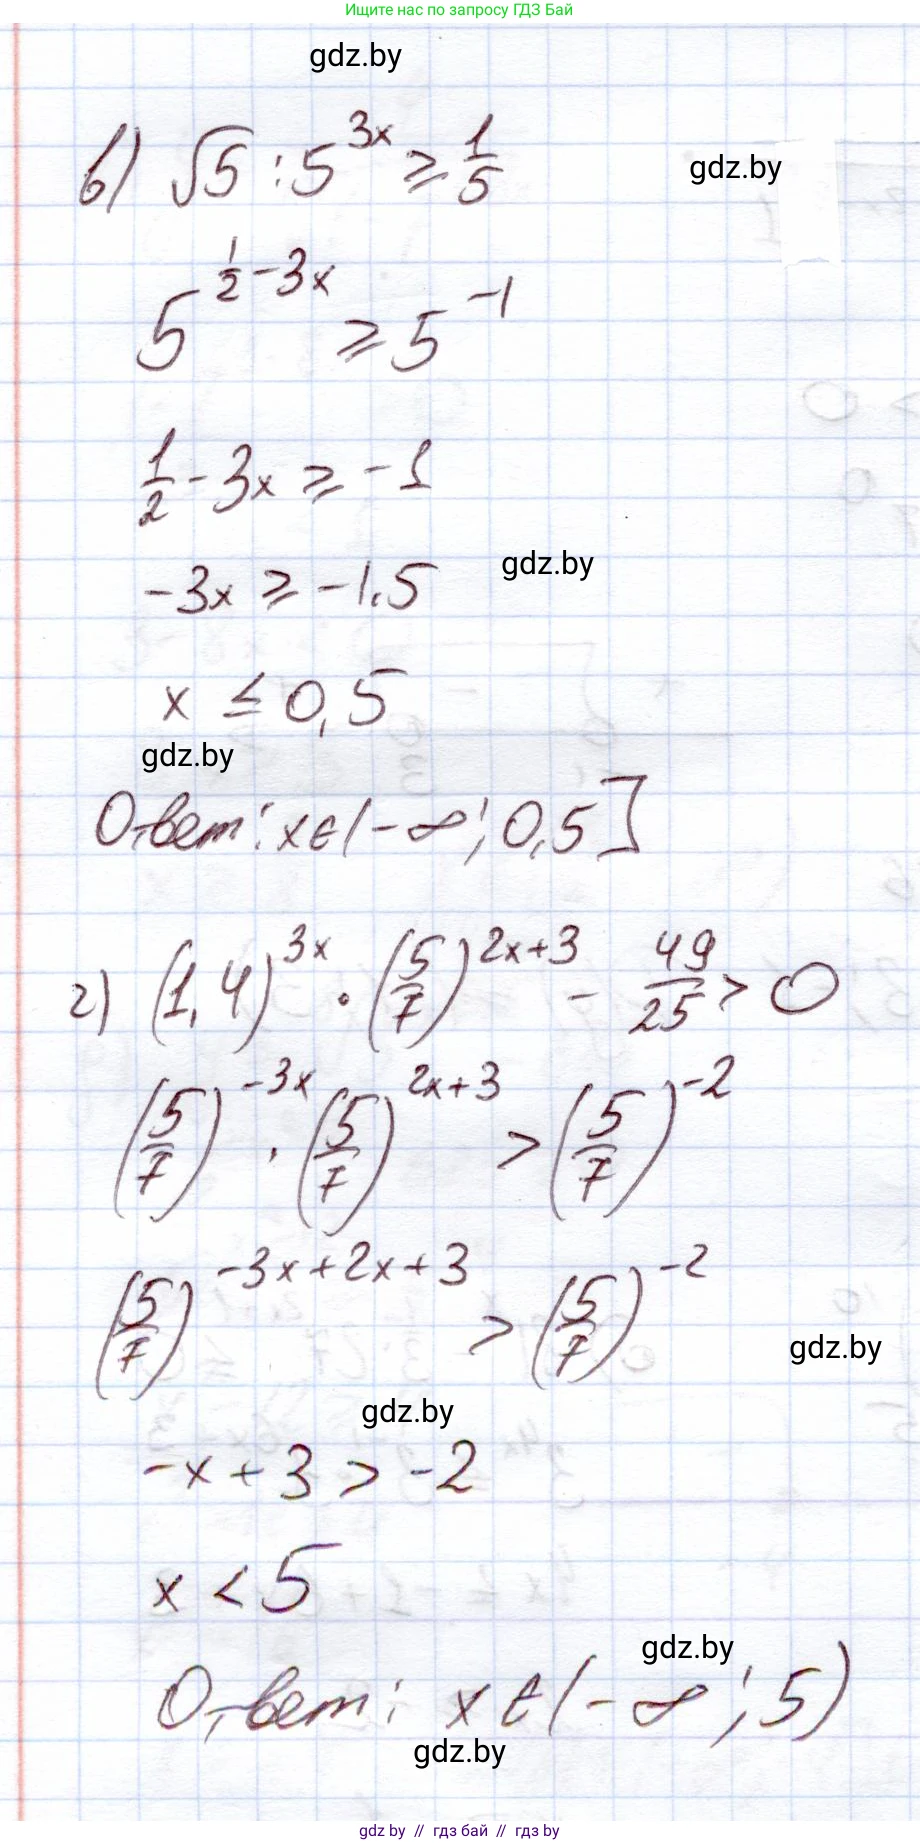 Ищите нас по запросу ГДЗ Бай
gdz.by
в) √5 : 5^(3x) ≥ 1/5
gdz.by
5^(1/2 - 3x) ≥ 5^(-1)
1/2 - 3x ≥ -1
gdz.by
-3x ≥ -1.5
x ≤ 0,5
gdz.by
Ответ: x∈(-∞; 0,5]
г) (1,4)^(3x) · (5/7)^(2x+3) - 49/25 > 0
(5/7)^(-3x) · (5/7)^(2x+3) > (5/7)^(-2)
(5/7)^(-3x+2x+3) > (5/7)^(-2)
gdz.by
gdz.by
-x + 3 > -2
x < 5
gdz.by
Ответ: x∈(-∞; 5)
gdz.by
gdz by // гдз бай // гдз by